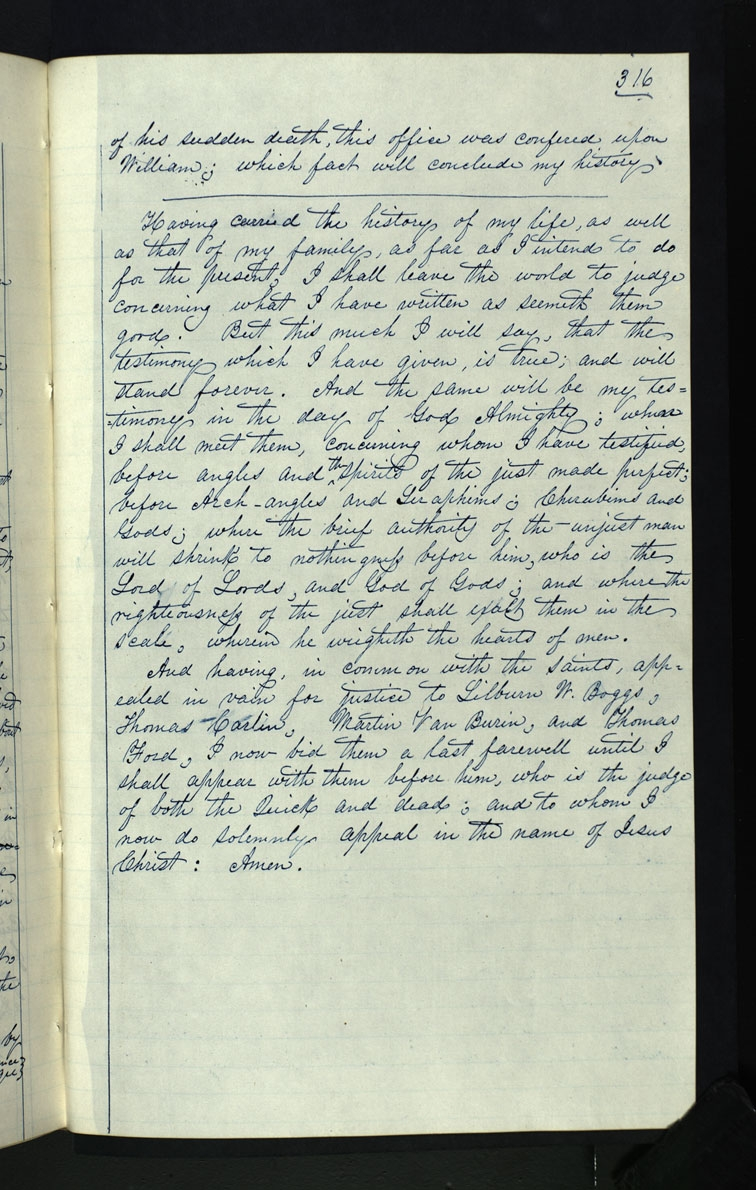 316
of his sudden death, this office was confered upon
William; which fact will conclude my history
Having carried the history of my life, as well
as that of my family, as far as I intend to do
for the present, I shall leave the world to judge
concerning what I have written as seemeth them
good. But this much I will say, that the
testimony which I have given, is true; and will
stand forever. And the same will be my tes=
=timony in the day of God Almighty; whare
I shall meet them, concerning whom I have testified,
before angles and the spirits of the just made perfect;
before Arch-angles and Seraphims; Cherubims and
Gods; where the brief authority of the unjust man
will shrink to nothingness before him, who is the
Lord of Lords, and God of Gods; and where the
righteousness of the just shall exalt them in the
scale, wherein he weigheth the hearts of men.
And having, in common with the saints, app=
ealed in vain for justice to Lilburn W. Boggs,
Thomas Carlin, Martin Van Burin, and Thomas
Ford, I now bid them a last farewell until I
shall appear with them before him, who is the judge
of both the Quick and dead; and to whom I
now do solemnly appeal in the name of Jesus
Christ: Amen.